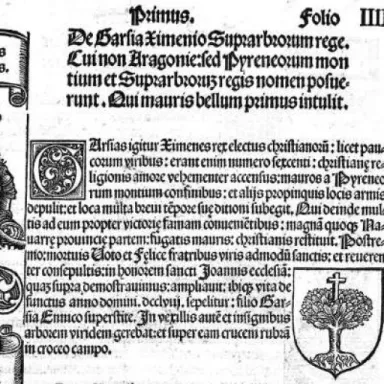 Primus. Folio IIII
De Garsia Ximenio Suprarbrorum rege.
Cui non Aragonie: sed Pyreneorum mon
tium et Suprarbroruꝫ regis nomen posue-
runt. Qui mauris bellum primus intulit.
s
s.
GArsias igitur Ximenes rex electus christianorũ: licet pau-
corum viribus: erant enim numero sexcenti: christianę re
ligionis amore vehementer accensus: mauros a Pyreneo
rum montium confinibus: et alijs propinquis locis armis
depulit: et loca multa breui tẽpore suę ditioni subegit. Qui deinde mul
tis ad eum propter victorię famam conueniẽtibus: magnã quoqꝫ Na-
uarrę prouincię partem: fugatis mauris: christianis restituit. Postre
mo: mortuis Uoto et Felice fratribus viris admodũ sanctis: et reueren
ter consepultis: in honorem sancti Joannis ecclesiã:
quaꝫ supra demostrauimus: ampliauit: ibiqꝫ vita de
functus anno domini. dcclviij. sepelitur: filio Gar-
sia Ennico superstite. In vexillis autẽ et insignibus
arborem viridem gerebat: et super eam crucem rubrã
in crocco campo.